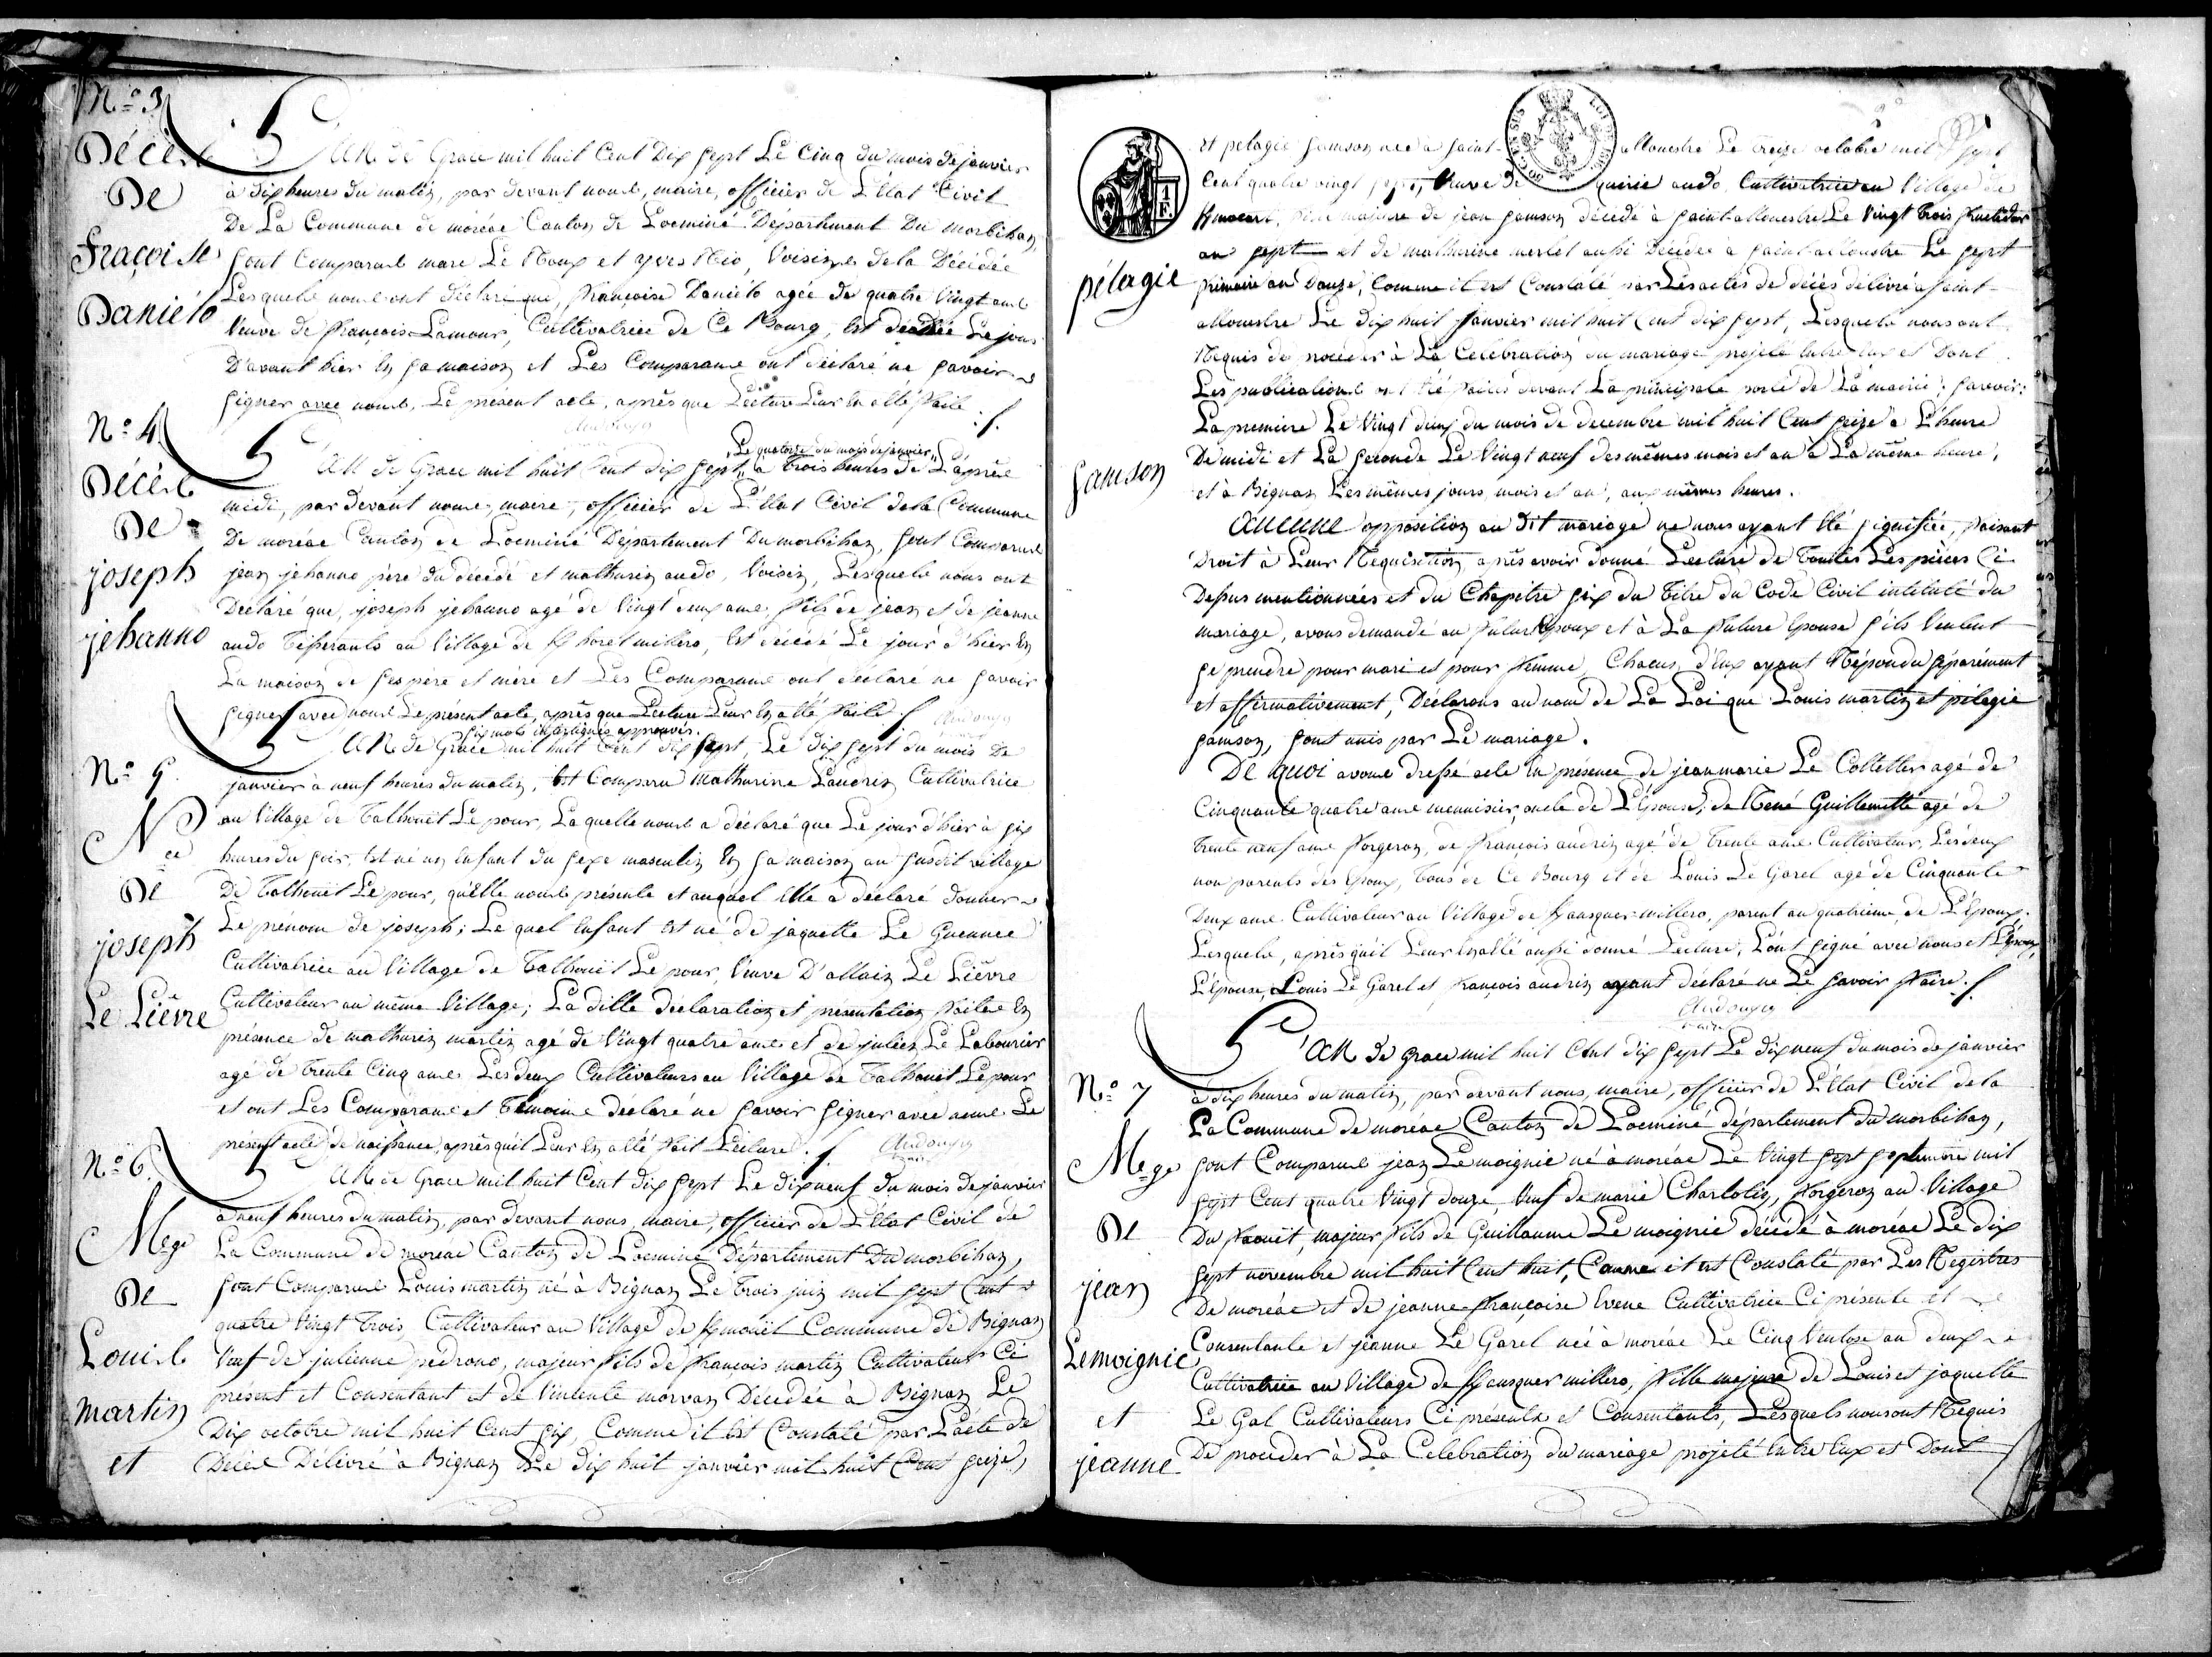 N.o 3
Décès
De
Fraçoise
Daniélo
L'AN de Grace mil huit Cent Dix Sept Le Cinq du mois de janvier
à dix heures du matin, par devant nous, maire, officier de L'État Civil
De La Commune de moréac Canton de Locminé Département Du morbihan
Sont Comparus marc Le Roux et yves Rio, Voisins de la Décédée
Lesquels nous ont déclaré que, françoise Daniélo agée de quatre Vingt ans
Veuve de françois Lamour, Cultivatrice de Ce Bourg, Est décédée Le jour
D'avant hier En sa maison et Les Comparans ont déclaré ne savoir
signer avec nous, Le présent acte, après que Lecture Leur En a été faite ./.
Audouyn
N.o 4
Décès
De
joseph
jehanno
L'AN de Grace mil huit Cent dix Sept, "Le quatorze du mois de janvier" à trois heures de L'après
midi, par devant nous, maire, officier de L'État Civil de la Commune
De moréac Canton de Locminé Département Du morbihan, Sont Comparus
jean jehanno père du décédé et mathurin audo, Voisin, Lesquels nous ont
Déclaré que, joseph jehanno agé de Vingt deux ans, fils de jean et de jeanne
audo Tisserants au Village de millero, Est décédé Le jour d'hier En
La maison de Ses père et mère et Les Comparans ont déclaré ne savoir
signer avec nous Le présent acte, après que Lecture Leur En a été faite ./. Audouyn
Six mots interlignés approuvés.
N.o 5
N.ce
De
joseph
Le Lièvre
L'AN de Grace mil huit Cent dix Sept, Le dix Sept du mois de
janvier à neuf heures du matin, Est Comparu mathurine Laudrin Cultivatrice
au Village de Talhouët Le pour, Laquelle nous a déclaré que Le jour d'hier à six
heures du soir, Est né un Enfant du Sexe masculin En sa maison au susdit village
De Talhouët Le pour, qu'Elle nous présente et auquel Elle a déclaré donner
Le prénom de joseph; Le quel Enfant Est né de jaquette Le Guennec
Cultivatrice au Village de Talhouët Le pour, Veuve D'allain Le Lièvre
Cultivateur au même Village; La ditte declaration et presentation faites En
présence de mathurin martin agé de Vingt quatre ans et de julien Le Labourier
agé de trente Cinq ans, Les deux Cultivateurs au Village de Talhouët Le pour
et ont Les Comparans et Témoins déclaré ne savoir signer avec nous Le
présent acte de naissance, après qu'il Leur En a été fait Lecture ./. Audouyn
N.o 6
M.ge
De
Louis
martin
et
L'AN de Grace mil huit Cent dix Sept Le dix neuf du mois de janvier
à neuf heures du matin, par devant nous, maire, officier de L'État Civil de
La Commune de moréac Canton de Locminé Département Du morbihan,
Sont Comparus Louis martin né à Bignan Le Trois juin mil Sept Cent
quatre Vingt Trois, Cultivateur au Village de Commune de Bignan
Veuf de julienne pédrono, majeur fils de françois martin Cultivateur Ci
présent et Consentant et de Vincente morvan Décédée à Bignan Le
Dix octobre mil huit Cent Six, Comme il Est Constaté par L'acte de
Décès Délivré à Bignan Le dix huit janvier mil huit Cent Seize,
pélagie
Samson
et pelagie Samson née à Saint-allouestre Le treize octobre mil Sept
Cent quatre vingt Sept, Veuve de audo Cultivatrice au Village de
majeure de jean Samson décédé à Saint allouestre Le Vingt trois fructidor
an Sept et de mathurine merlet aussi Décédée à Saint allouestre Le Sept
frimaire an Douze, Comme il est Constaté par Les actes de décès délivré à Saint-
allouestre Le dix huit janvier mil huit Cent dix Sept, Lesquels nous ont
Requis de procéder à La Célébration du mariage projeté Entre eux et Dont
Les publications ont été faites devant La principale porte de La mairie; Savoir:
La première Le Vingt deux du mois de décembre mil huit Cent Seize à L'heure
De midi et La Seconde Le Vingt neuf des mêmes mois et an à La même heure,
et à Bignan Les mêmes jours, mois et an, aux mêmes heures.
AUCUNE opposition au Dit mariage ne nous ayant été signifiée, faisant
Droit à Leur Requisition, après avoir donné Lecture de Toutes Les pièces Ci
Dessus mentionnées et du Chapitre Six du Titre du Code Civil intitulé du
mariage, avons demandé au futur Epoux et à La future Epouse S'ils Veulent
Se prendre pour mari et pour femme, Chacun d'Eux ayant Répondu Séparément
et affirmativement, Déclarons au nom de La Loi que Louis martin et pélagie
Samson, Sont unis par Le mariage.
DE QUOI avons dressé acte En présence de jean marie Le Colletter agé de
Cinquante quatre ans menuisier, oncle de L'Epouse, de René Guillemette agé de
Trente neuf ans forgeron, de françois audrin agé de Trente ans Cultivateur, Les deux
non parents des Epoux, Tous de Ce Bourg et de Louis Le Garel agé de Cinquante
Deux ans Cultivateur au Village de millero, parent au quatrième de L'Epoux.
Lesquels, après qu'il Leur En a été aussi donné Lecture, L'ont signé avec nous et L'Epoux,
L'épouse, Louis Le Garel et françois audrin ayant déclaré ne Le savoir faire ./.
Audouyn
maire
N.o 7
M.ge
De
jean
Lemoignic
et
jeanne
L'AN de grace mil huit Cent dix Sept Le dix neuf du mois de janvier
à dix heures du matin, par devant nous, maire, officier de L'État Civil de la
La Commune de moréac Canton de Locminé département du morbihan,
Sont Comparus jean Lemoignic né à moréac Le Vingt Sept Septembre mil
Sept Cent quatre Vingt douze, Veuf de marie Charlotin, forgeron au Village
Du faouët, majeur fils de Guillaume Le moignic décédé à moréac Le dix
Sept novembre mil huit Cent huit, Comme il est Constaté par Les Registres
De moréac et de jeanne françoise Evene Cultivatrice Ci présente et
Consentante et jeanne Le Garel née à moréac Le Cinq Ventose an deux
Cultivatrice au Village de millero, fille majeure de Louis et jaquette
Le Gal Cultivateurs Ci présents et Consentants, Lesquels nous ont Requis
De procéder à La Celebration du mariage projeté Entre Eux et Dont